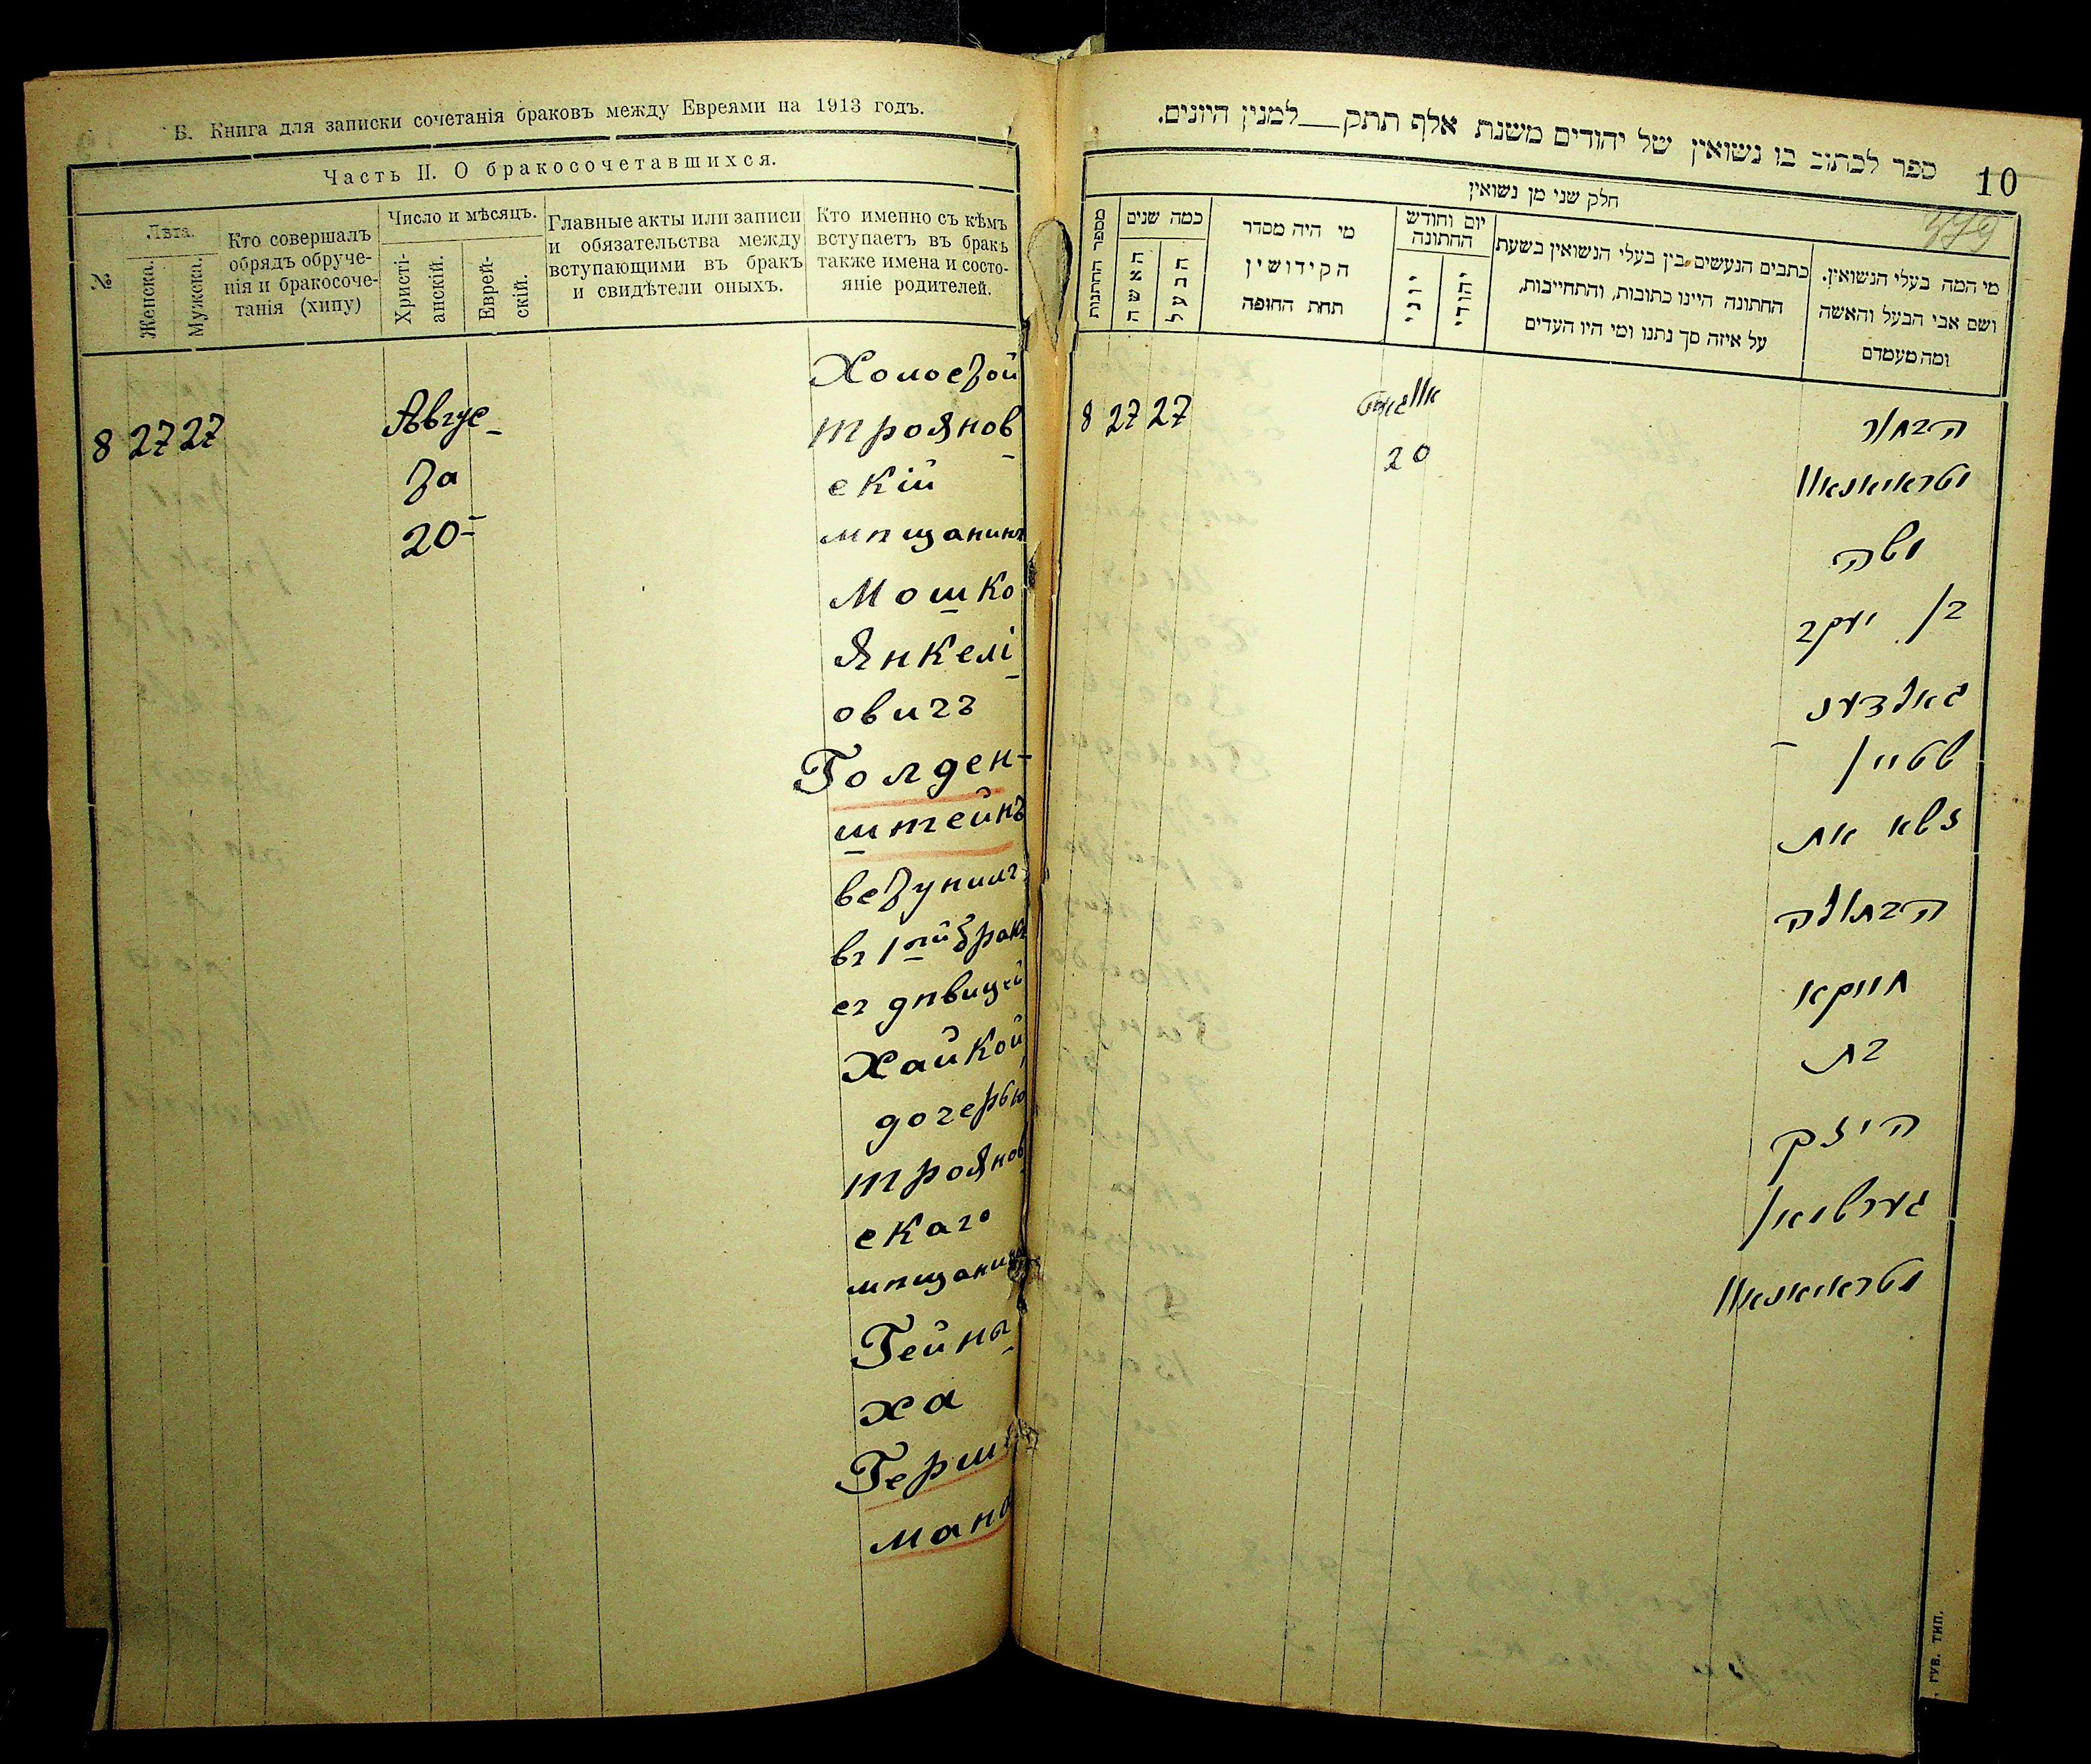 Б. Книга для записки сочетанія браковъ между Евреями на 1913 годъ.
Часть II. О бракосочетавшихся.
№
Лѣта.
Женска.
Мужска.
Кто совершалъ
обрядъ обруче-
нія и бракосоче-
танія (хипу)
Число и мѣсяцъ.
Христі-
анскій.
Еврей-
скій.
Главные акты или записи
и обязательства между
вступающими въ бракъ
и свидѣтели оныхъ.
Кто именно съ кѣмъ
вступаетъ въ бракъ
также имена и состо-
яніе родителей.
8 27 27
Авгус-
та
20-
Холостой
троянов-
скій
мѣщанинъ
Мошко
Янкелі-
овичъ
Голден-
штейнъ
въ 1й бракъ
съ дѣвицей
Хайкой,
дочерью
троянов-
скаго
мѣщанина
Гейны-
ха
Герш-
мана
ספר לכתוב בו נשואין של יהודים משנת אלף תתק__למנין היונים.
10
חלק שני מן נשואין
מספר החתנות
כמה שנים
האשה
הבעל
מי היה מסדר
הקידושין
תחת החופה
יום וחודש
החתונה
יוני
יהודי
כתבים הנעשים בין בעלי הנשואין בשעת
החתונה היינו כתובות, והתחייבות,
על איזה סך נתנו ומי היו העדים
מי המה בעלי הנשואין.
ושם אבי הבעל והאשה
ומה מעמדם
8 27 27
20
הבחור
מטראיאנאוו
משה
בן יעקב
גאלדענ-
שטיין
נשא את
הבתולה
חייקא
בת
גערשמאן
מטראיאנאוו
ГУВ. ТИП.